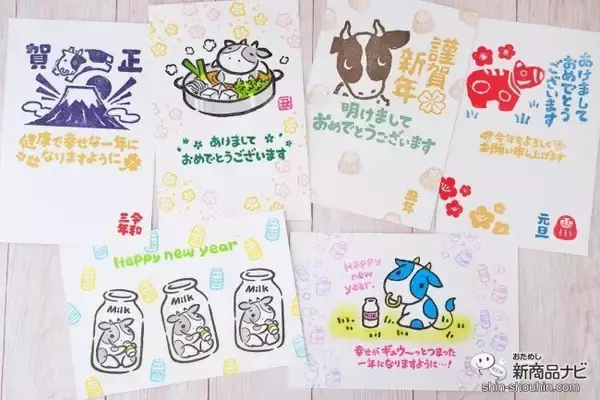 賀正
健康で幸せな一年に
なりますように
令和
三年
丑
あけまして
おめでとうございます
謹賀
新年
明けまして
おめでとうございます
丑年
あけまして
おめでとう
ございます
今年もよろしく
お願い申し上げます
元旦
Happy new year
Milk
Milk
Milk
Happy
new
year.
MILK
幸せがギュウ〜っとつまった
一年になりますように…!
おためし
新商品ナビ
shin-shouhin.com